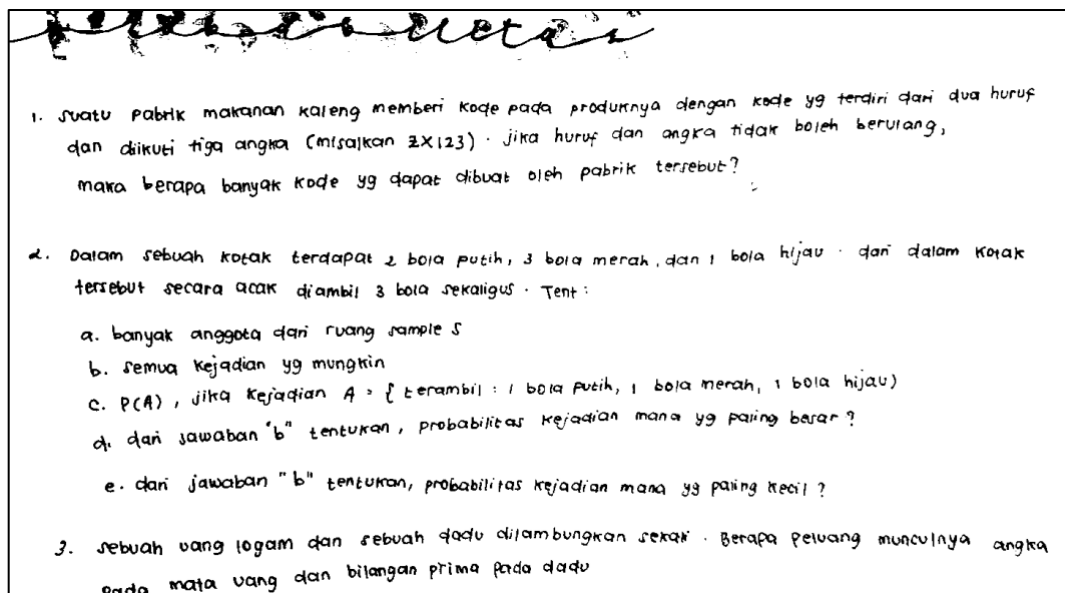 Probabilitas
1. suatu pabrik makanan kaleng memberi kode pada produknya dengan kode yg terdiri dari dua huruf
dan diikuti tiga angka (misalkan ZX123). jika huruf dan angka tidak boleh berulang,
maka berapa banyak kode yg dapat dibuat oleh pabrik tersebut?
2. Dalam sebuah kotak terdapat 2 bola putih, 3 bola merah, dan 1 bola hijau. dari dalam kotak
tersebut secara acak diambil 3 bola sekaligus. Tent:
a. banyak anggota dari ruang sample S
b. semua kejadian yg mungkin
c. P(A), jika kejadian A = {terambil : 1 bola putih, 1 bola merah, 1 bola hijau)
d. dari jawaban "b" tentukan, probabilitas kejadian mana yg paling besar?
e. dari jawaban "b" tentukan, probabilitas kejadian mana yg paling kecil?
3. sebuah uang logam dan sebuah dadu dilambungkan sekali. Berapa peluang munculnya angka
pada mata uang dan bilangan prima pada dadu